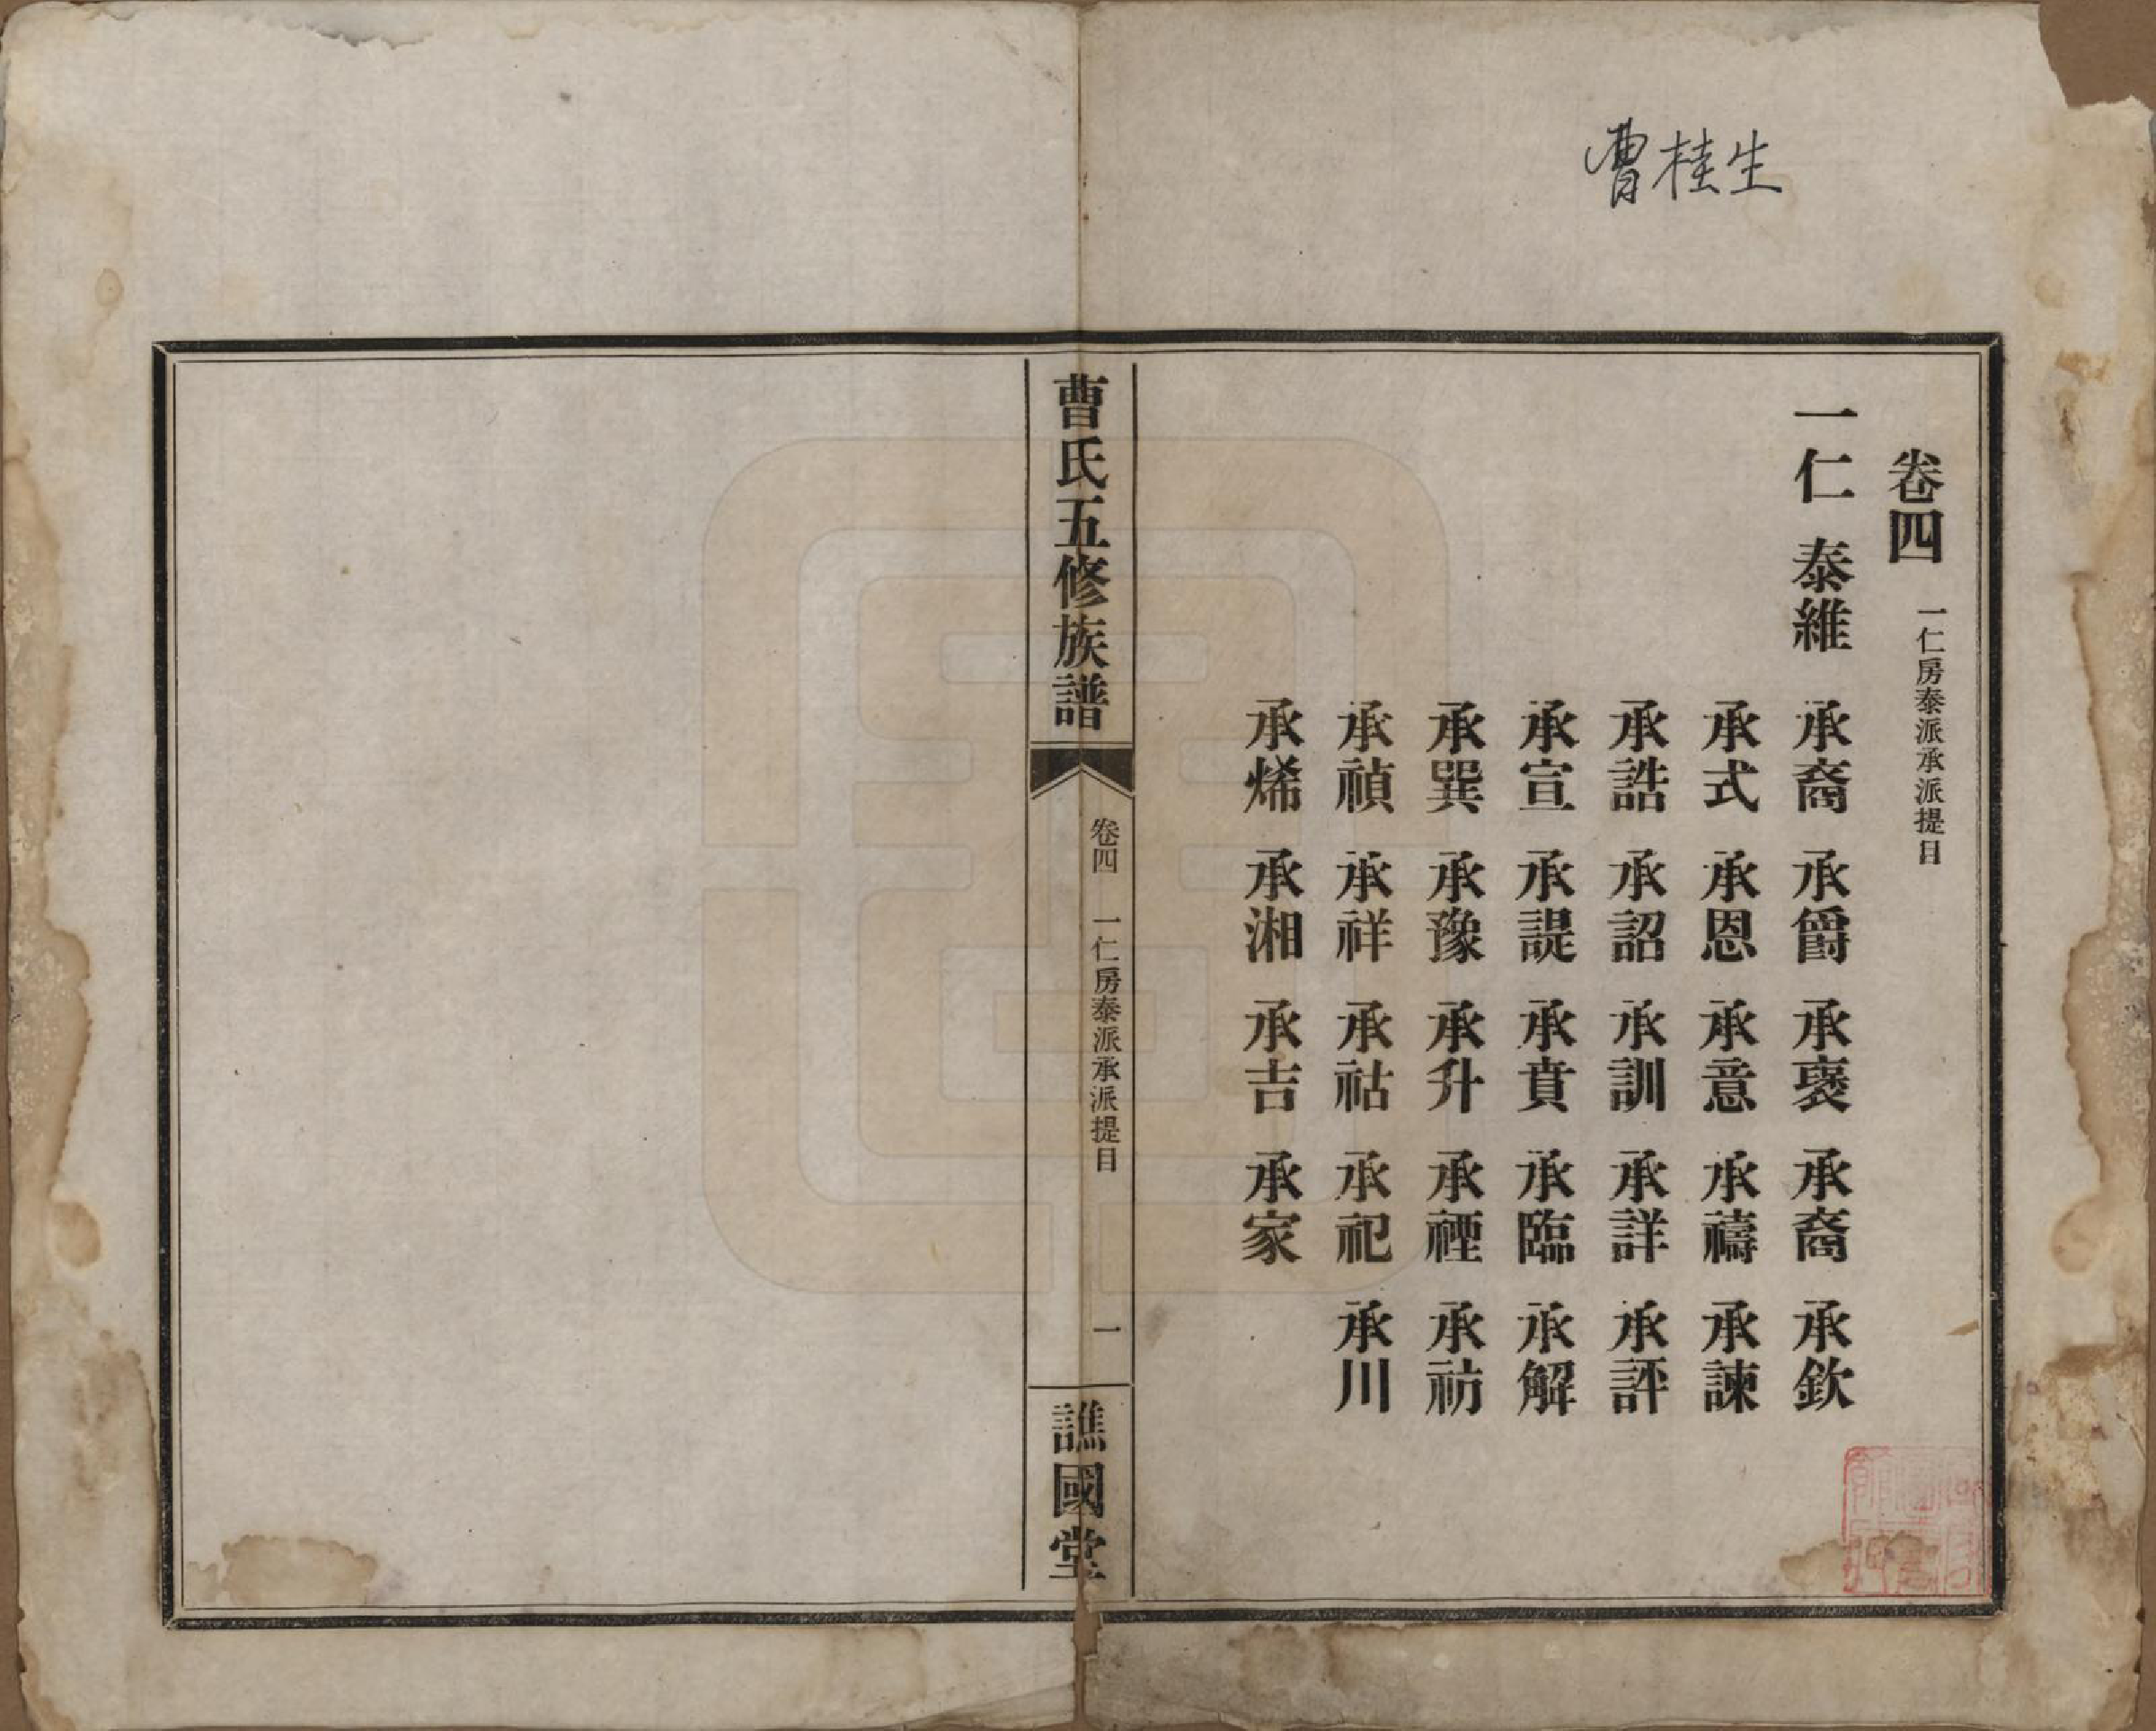 曹桂生
卷四 一仁房泰派承派提目
一仁 泰維 承裔 承爵 承褒 承裔 承欽
承式 承恩 承意 承禱 承諫
承誥 承詔 承訓 承詳 承評
承宣 承諟 承賁 承臨 承解
承巽 承豫 承升 承禋 承祊
承禎 承祥 承祜 承祀 承川
承烯 承湘 承吉 承家
曹氏五修族譜
卷四 一仁房泰派承派提目 一
譙國堂